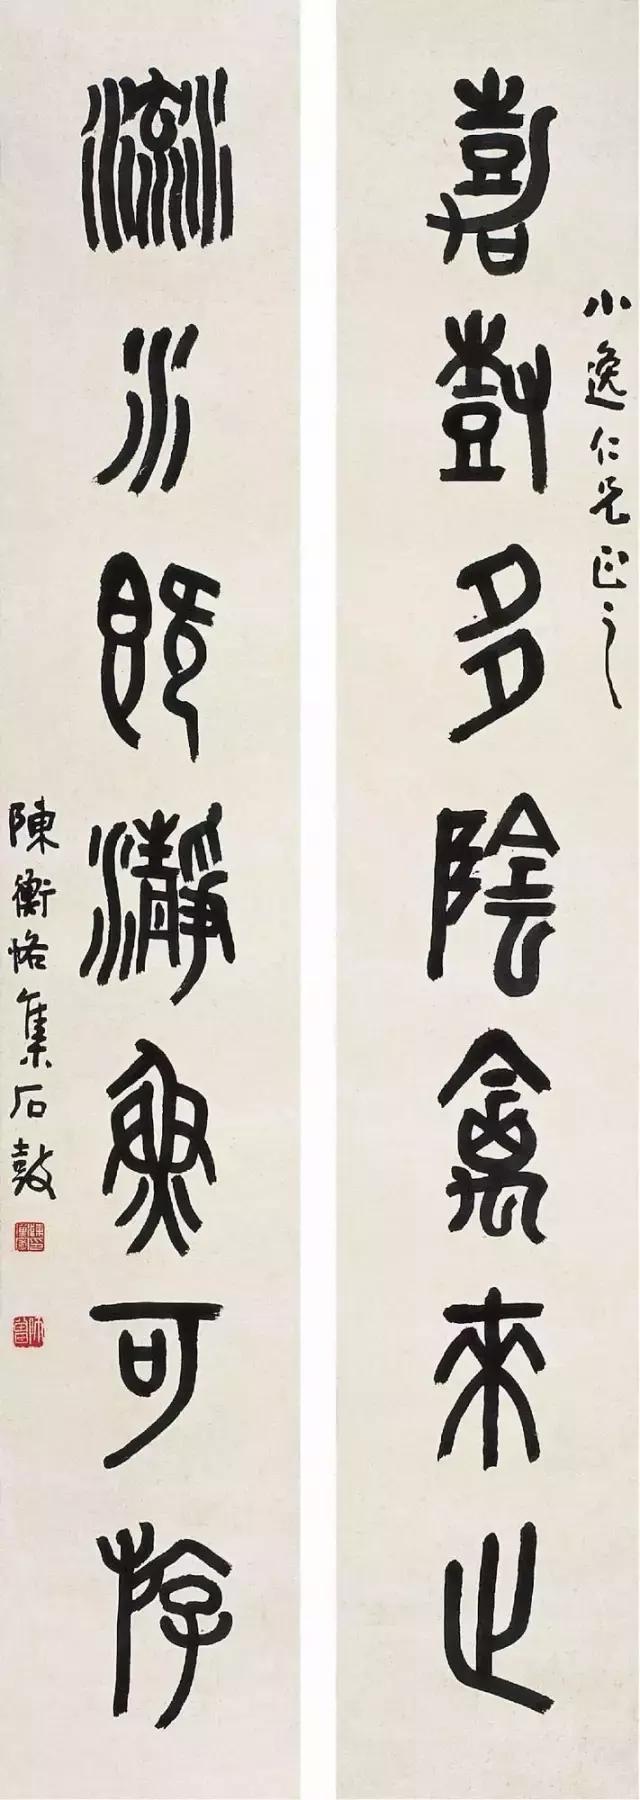 小逸仁兄正之
嘉尌多陰禽來止
流水既瀞魚可斿
陳衡恪集石鼓
師曾